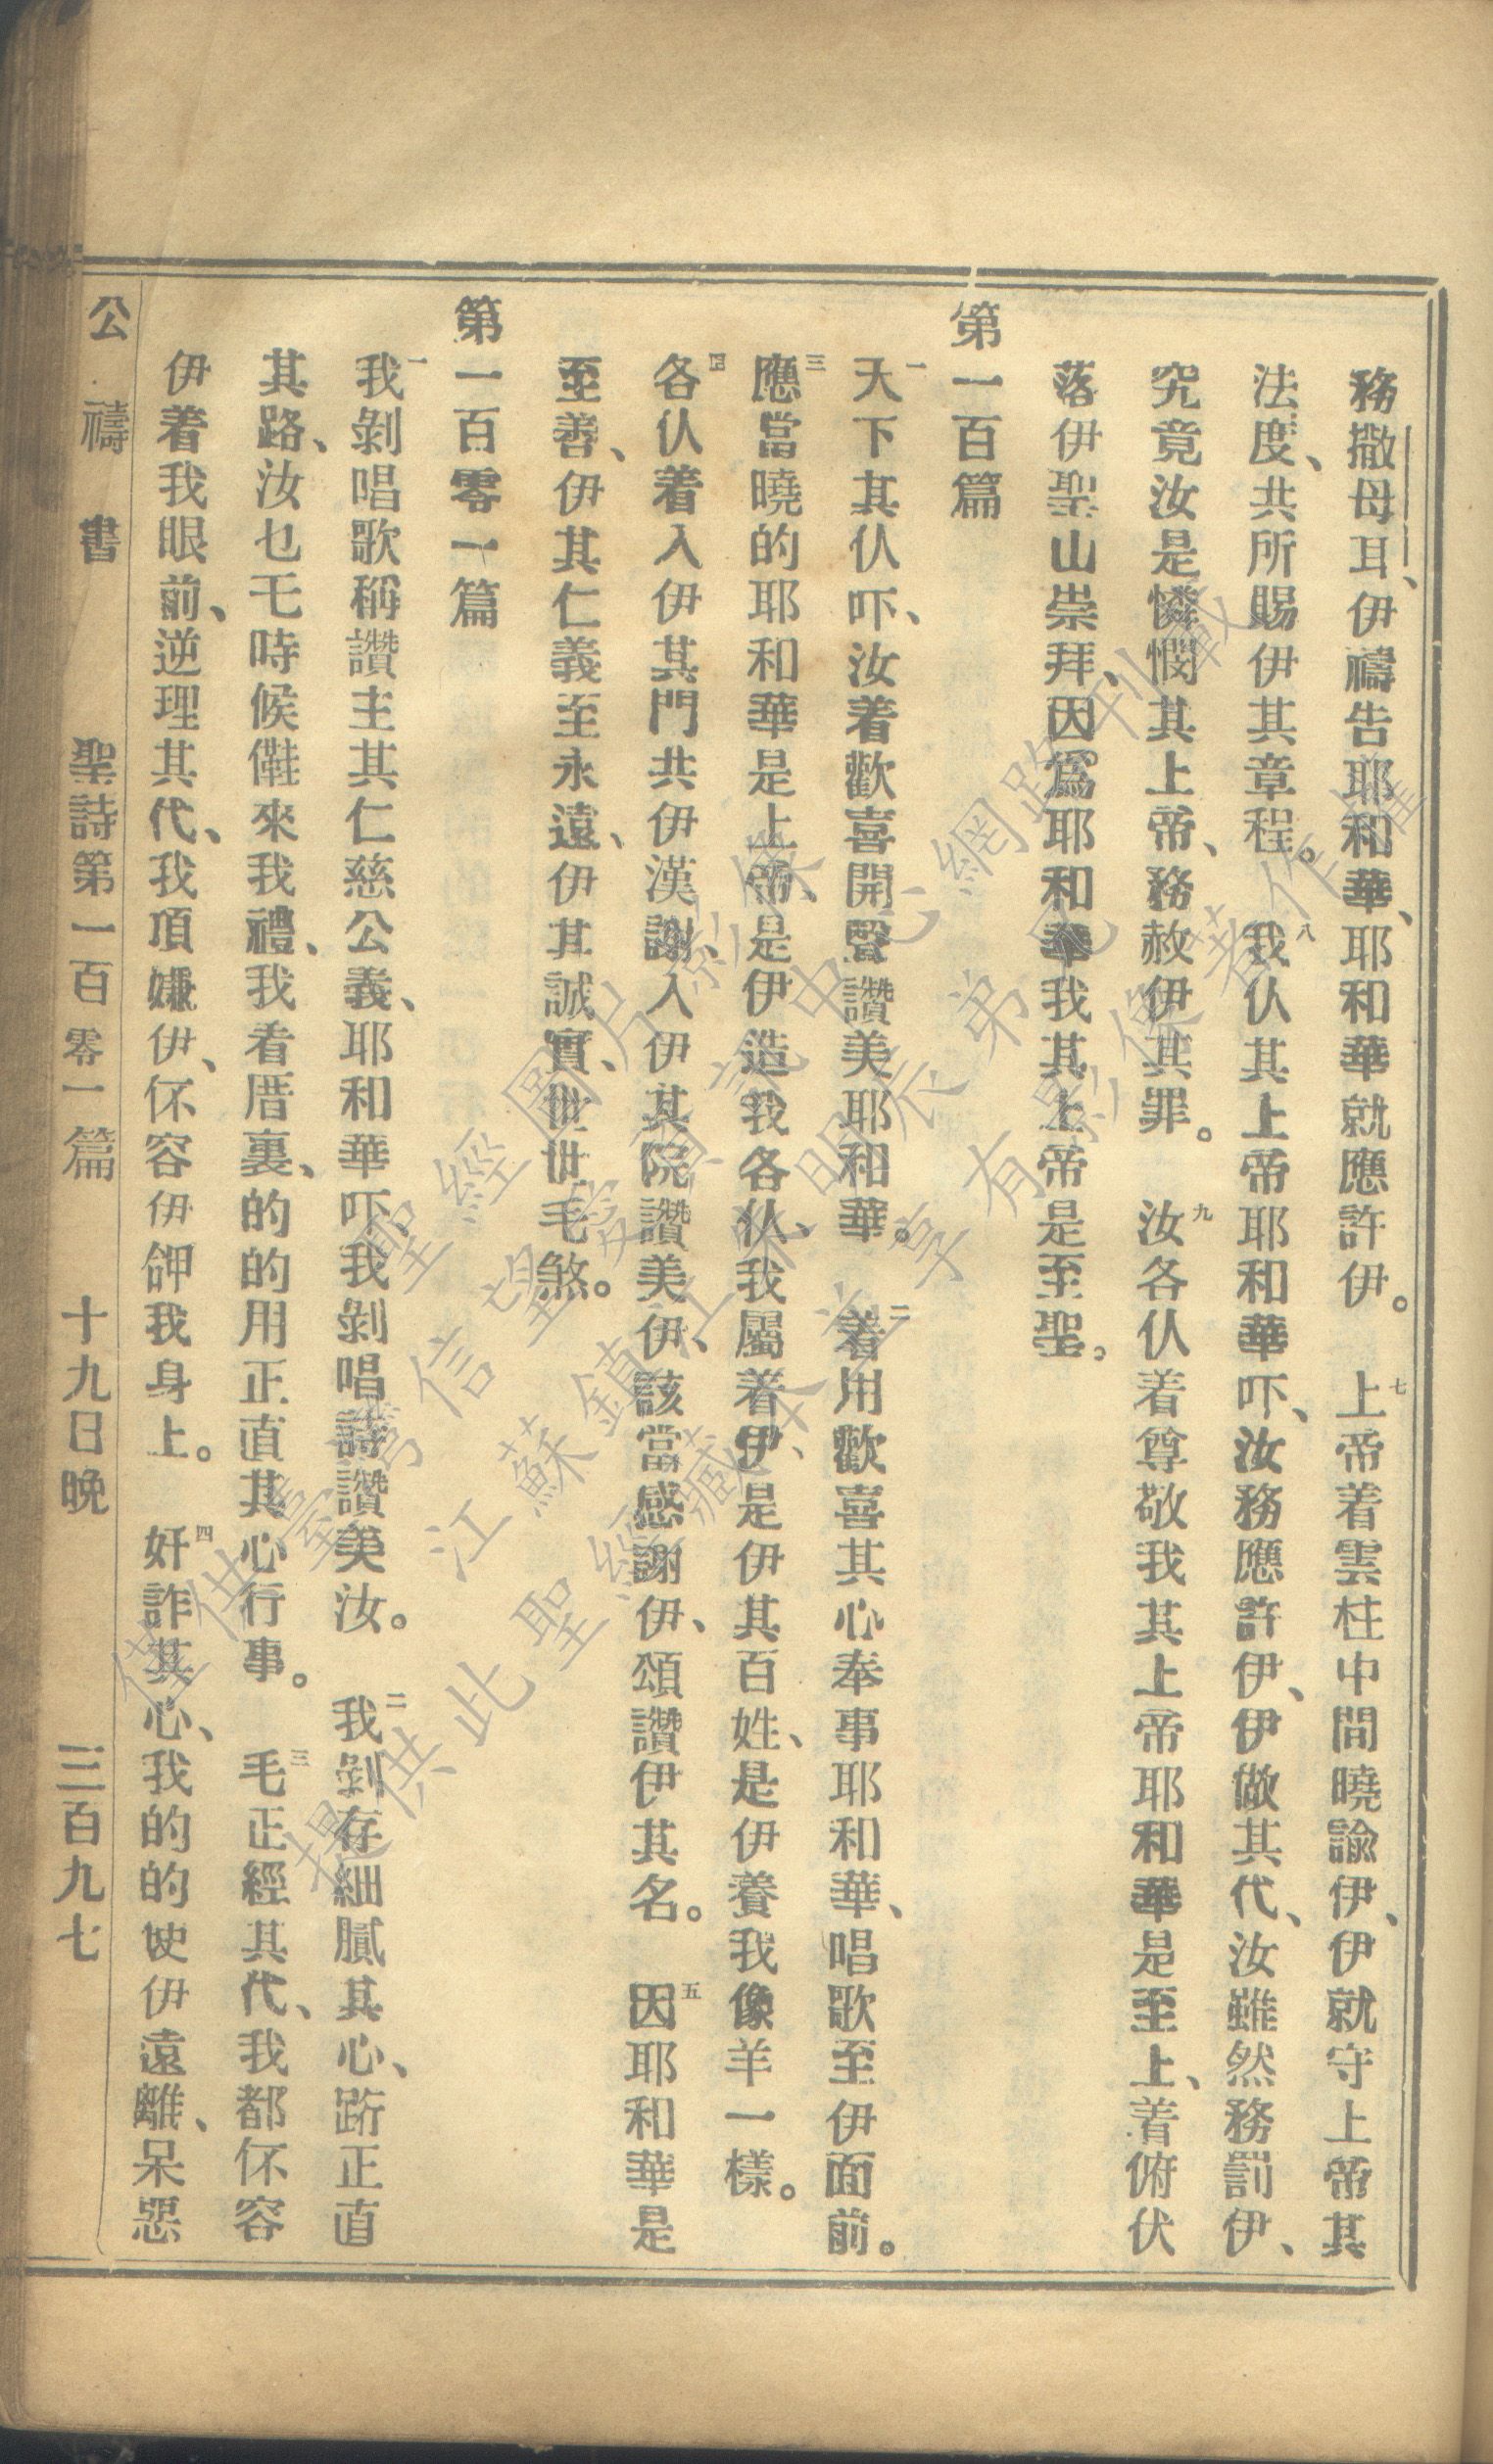 務撒母耳、伊禱告耶和華、耶和華就應許伊。 七上帝着雲柱中間曉諭伊、伊就守上帝其
法度、共所賜伊其章程。 八我仈其上帝耶和華吓、汝務應許伊、伊做其代、汝雖然務罰伊、
究竟汝是憐憫其上帝、務赦伊其罪。 九汝各仈着尊敬我其上帝耶和華是至上、着俯伏
落伊聖山崇拜、因爲耶和華我其上帝是至聖。
第一百篇
一天下其仈吓、汝着歡喜開聲讚美耶和華。 二着用歡喜其心奉事耶和華、唱歌至伊面前。
三應當曉的耶和華是上帝、是伊造我各仈、我屬着伊、是伊其百姓、是伊養我像羊一樣。
四各仈着入伊其門共伊漢謝、入伊其院讚美伊、該當感謝伊、頌讚伊其名。 五因耶和華是
至善、伊其仁義至永遠、伊其誠實、世世毛煞。
第一百零一篇
一我剝唱歌稱讚主其仁慈公義、耶和華吓、我剝唱詩讚美汝。 二我剝存細膩其心、跡正直
其路、汝乜乇時候儺來我禮、我看厝裏、的的用正直其心行事。 三毛正經其代、我都伓容
伊着我眼前、逆理其代、我項嫌伊、伓容伊䣆我身上。 四奸詐其心、我的的使伊遠離、呆惡
公禱書 聖詩第一百零一篇 十九日晚 三百九七